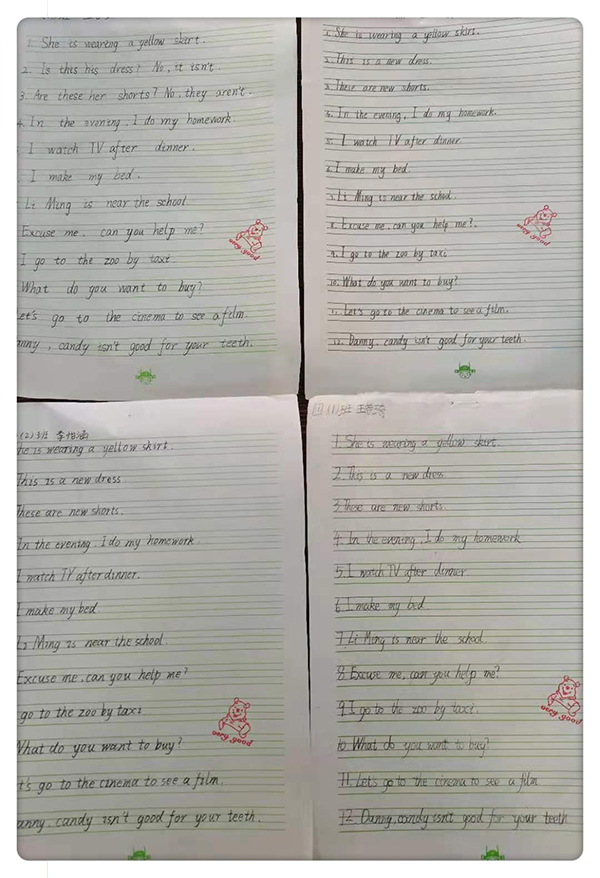 1. She is wearing a yellow skirt.
2. Is this his dress? No, it isn't.
3. Are these her shorts? No, they aren't.
4. In the evening, I do my homework.
I watch TV after dinner.
I make my bed.
Li Ming is near the school.
Excuse me, can you help me?
I go to the zoo by taxi.
What do you want to buy?
Let's go to the cinema to see a film.
anny, candy isn't good for your teeth.
very good
1. She is wearing a yellow skirt.
2. This is a new dress.
3. These are new shorts.
4. In the evening, I do my homework.
5. I watch TV after dinner.
6. I make my bed.
7. Li Ming is near the school.
8. Excuse me, can you help me?
9. I go to the zoo by taxi
10. What do you want to buy?
11. Let's go to the cinema to see a film.
12. Danny, candy isn't good for your teeth.
very good
(2)班 李怡涵
She is wearing a yellow skirt.
This is a new dress
These are new shorts.
In the evening, I do my homework.
I watch TV after dinner.
I make my bed
Li Ming is near the school.
Excuse me, can you help me?
go to the zoo by taxi
What do you want to buy?
t's go to the cinema to see a film.
anny, candy isn't good for your teeth.
very good
四(1)班
1. She is wearing a yellow skirt.
2. This is a new dress
3. these are new shorts.
4. In the evening, I do my homework
5. I watch TV after dinner
6. I make my bed
7. Li Ming is near the school.
8. Excuse me, can you help me?
9. I go to the zoo by taxi.
10. What do you want to buy?
11. Let's go to the cinema to see a film
12. Danny, candy isn't good for your teeth
very good